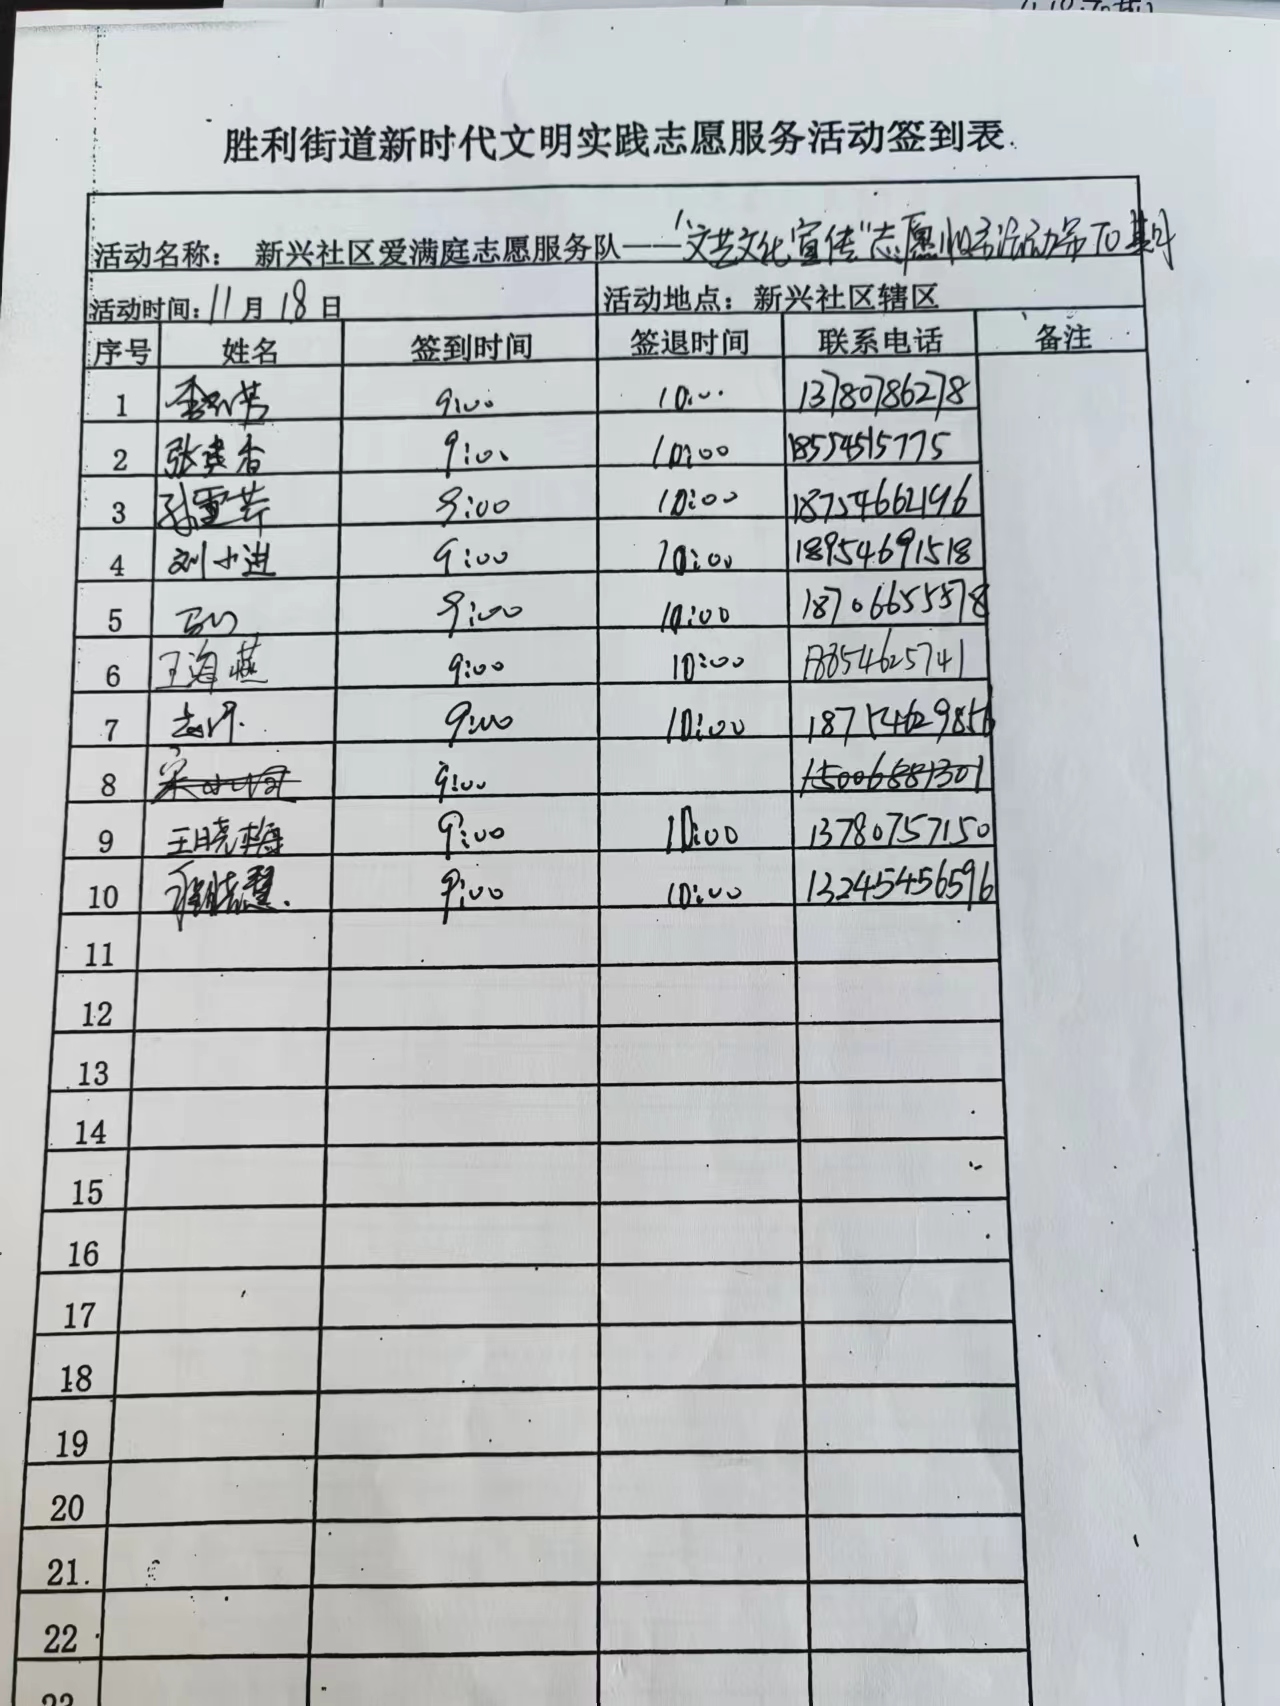 胜利街道新时代文明实践志愿服务活动签到表
活动名称： 新兴社区爱满庭志愿服务队——“文艺文化宣传”志愿服务活动第70期
活动时间：11月18日 活动地点：新兴社区辖区
序号 姓名 签到时间 签退时间 联系电话 备注
1 9:00 10:00 13780786278
2 张建香 9:00 10:00 18554515775
3 9:00 10:00 18754662196
4 刘小进 9:00 10:00 18954691518
5 9:00 10:00 18706655578
6 王海燕 9:00 10:00 18854625741
7 9:00 10:00 18754629856
8 9:00 15006881301
9 王晓梅 9:00 10:00 13780757150
10 9:00 10:00 13245456596
11
12
13
14
15
16
17
18
19
20
21
22
23